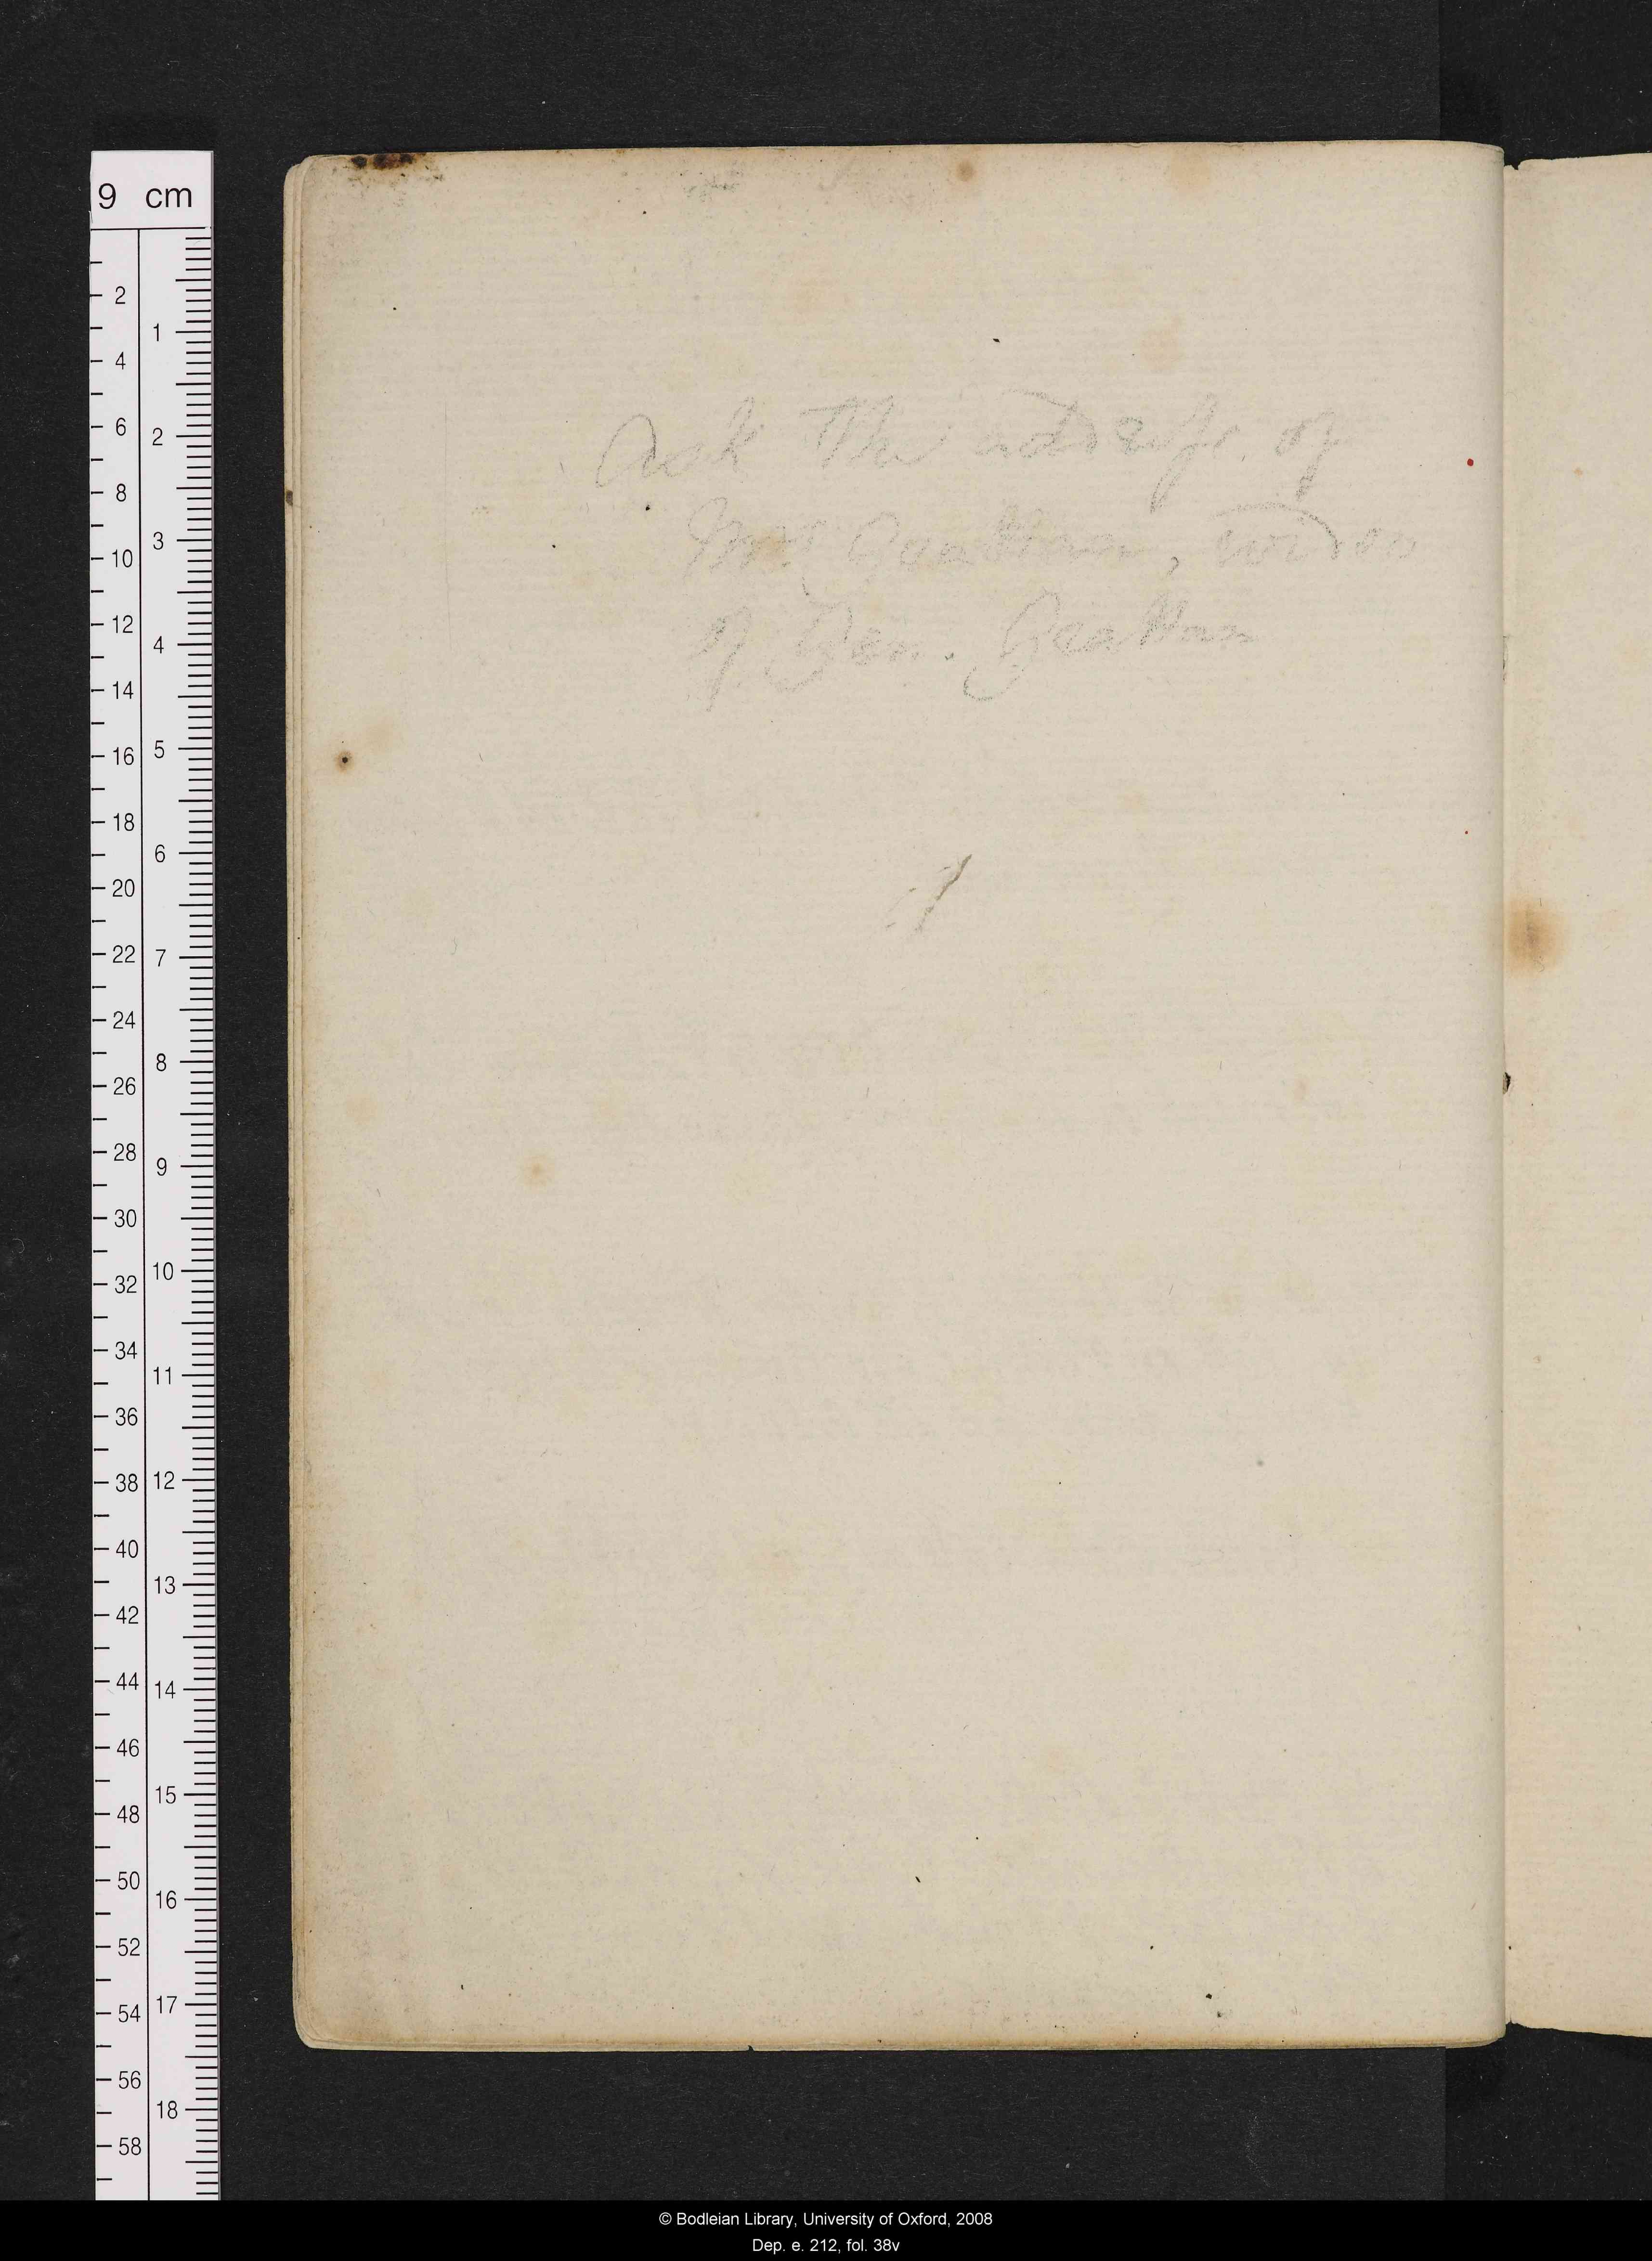 Ask the adresse of
Mrs Grattan, widow
of Gen. Grattan
9 cm
2
4
6
8
10
12
14
16
18
20
22
24
26
28
30
32
34
36
38
40
42
44
46
48
50
52
54
56
58
1
2
3
4
5
6
7
8
9
10
11
12
13
14
15
16
17
18
© Bodleian Library, University of Oxford, 2008
Dep. e. 212, fol. 38v